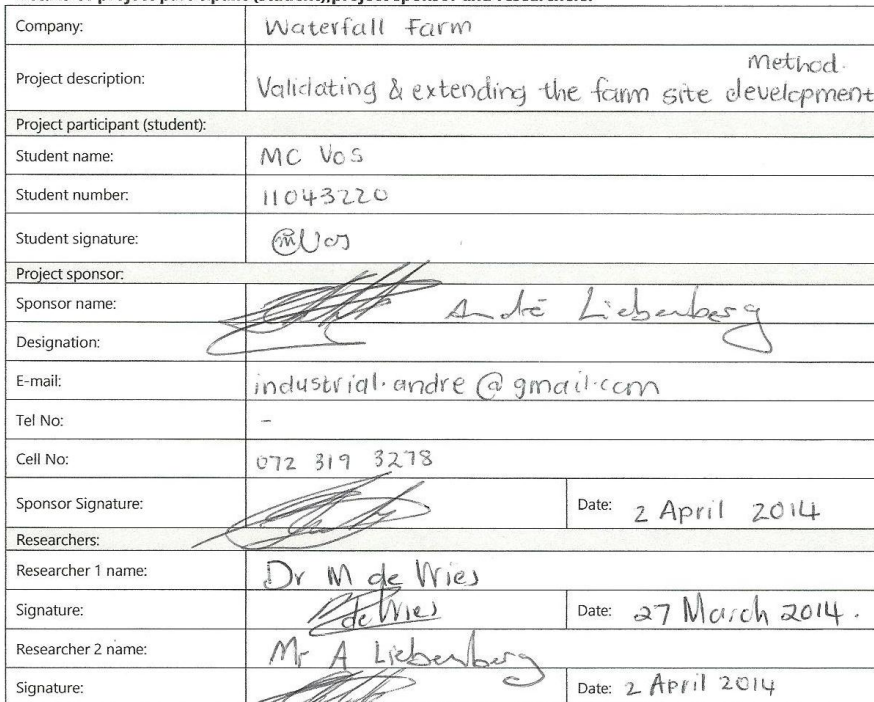 Company: Waterfall Farm
method.
Project description: Validating & extending the farm site development
Project participant (student):
Student name: MC Vos
Student number: 11043220
Student signature: Vos
Project sponsor:
Sponsor name: André Liebenberg
Designation:
E-mail: industrial.andre@gmail.com
Tel No: -
Cell No: 072 319 3278
Sponsor Signature: Date: 2 April 2014
Researchers:
Researcher 1 name: Dr M de Vries
Signature: de Vries Date: 27 March 2014.
Researcher 2 name: Mr A Liebenberg
Signature: Date: 2 April 2014